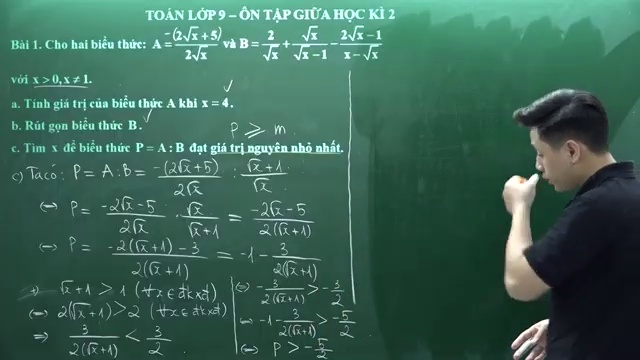 TOÁN LỚP 9 – ÔN TẬP GIỮA HỌC KÌ 2
Bài 1. Cho hai biểu thức: A = -(2√x + 5) / 2√x và B = 2/√x + √x/(√x - 1) - (2√x - 1)/(x - √x)
với x > 0, x ≠ 1.
a. Tính giá trị của biểu thức A khi x = 4. ✓
b. Rút gọn biểu thức B. ✓
P ⩾ m
c. Tìm x để biểu thức P = A : B đạt giá trị nguyên nhỏ nhất.
c) Ta có: P = A : B = -(2√x + 5) / 2√x : (√x + 1)/√x
⇔ P = (-2√x - 5)/2√x · √x/(√x + 1) = (-2√x - 5)/2(√x + 1)
⇔ P = (-2(√x + 1) - 3)/2(√x + 1) = -1 - 3/2(√x + 1)
+) √x + 1 > 1 (∀x ∈ đkxđ)
⇔ 2(√x + 1) > 2 (∀x ∈ đkxđ)
⇒ 3/2(√x + 1) < 3/2
⇔ -3/2(√x + 1) > -3/2
⇔ -1 - 3/2(√x + 1) > -5/2
⇔ P > -5/2